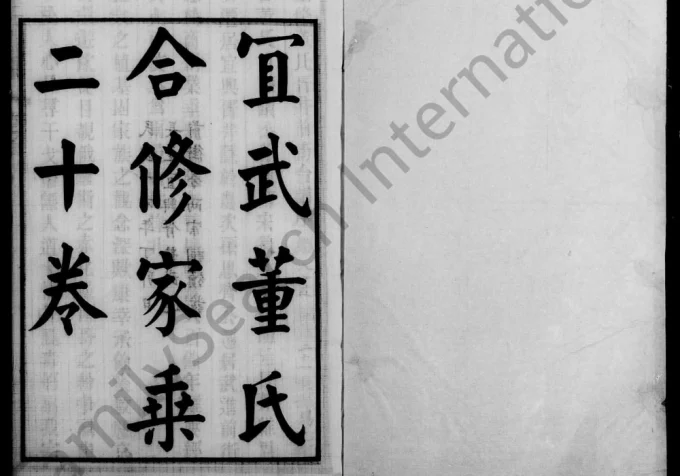 宜武董氏
合修家乗
二十卷
FamilySearch International